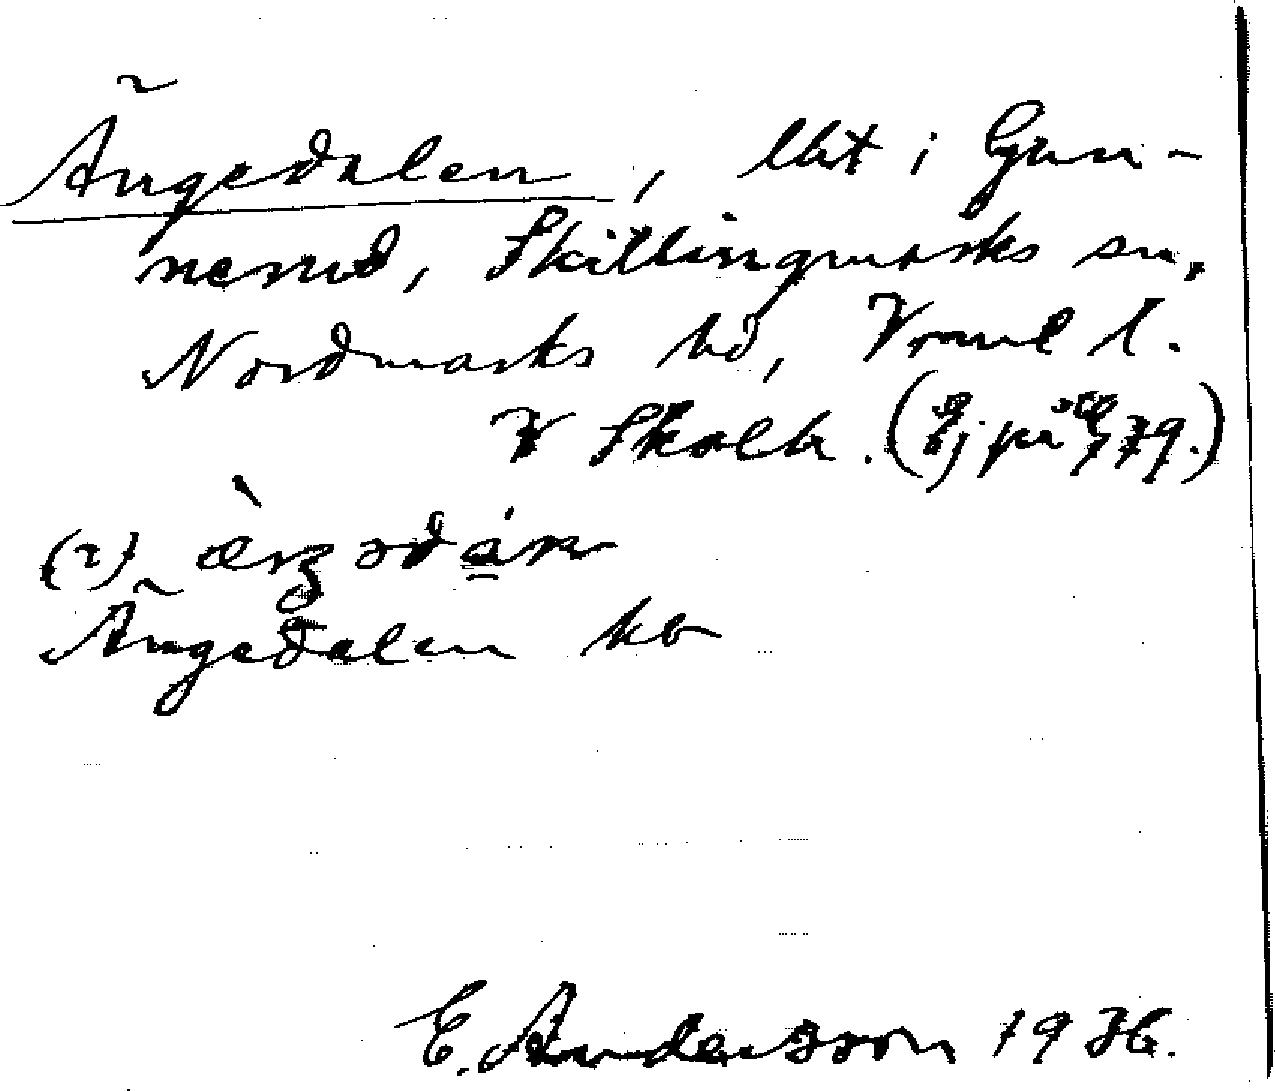 Ängedalen, lht i Gun-
nerud, Skillingmarks sn,
Nordmarks hd, Värml l.
V Skolh. (Ej på 79.)
(2)
Ängedalen kb
E. Andersson 1936.